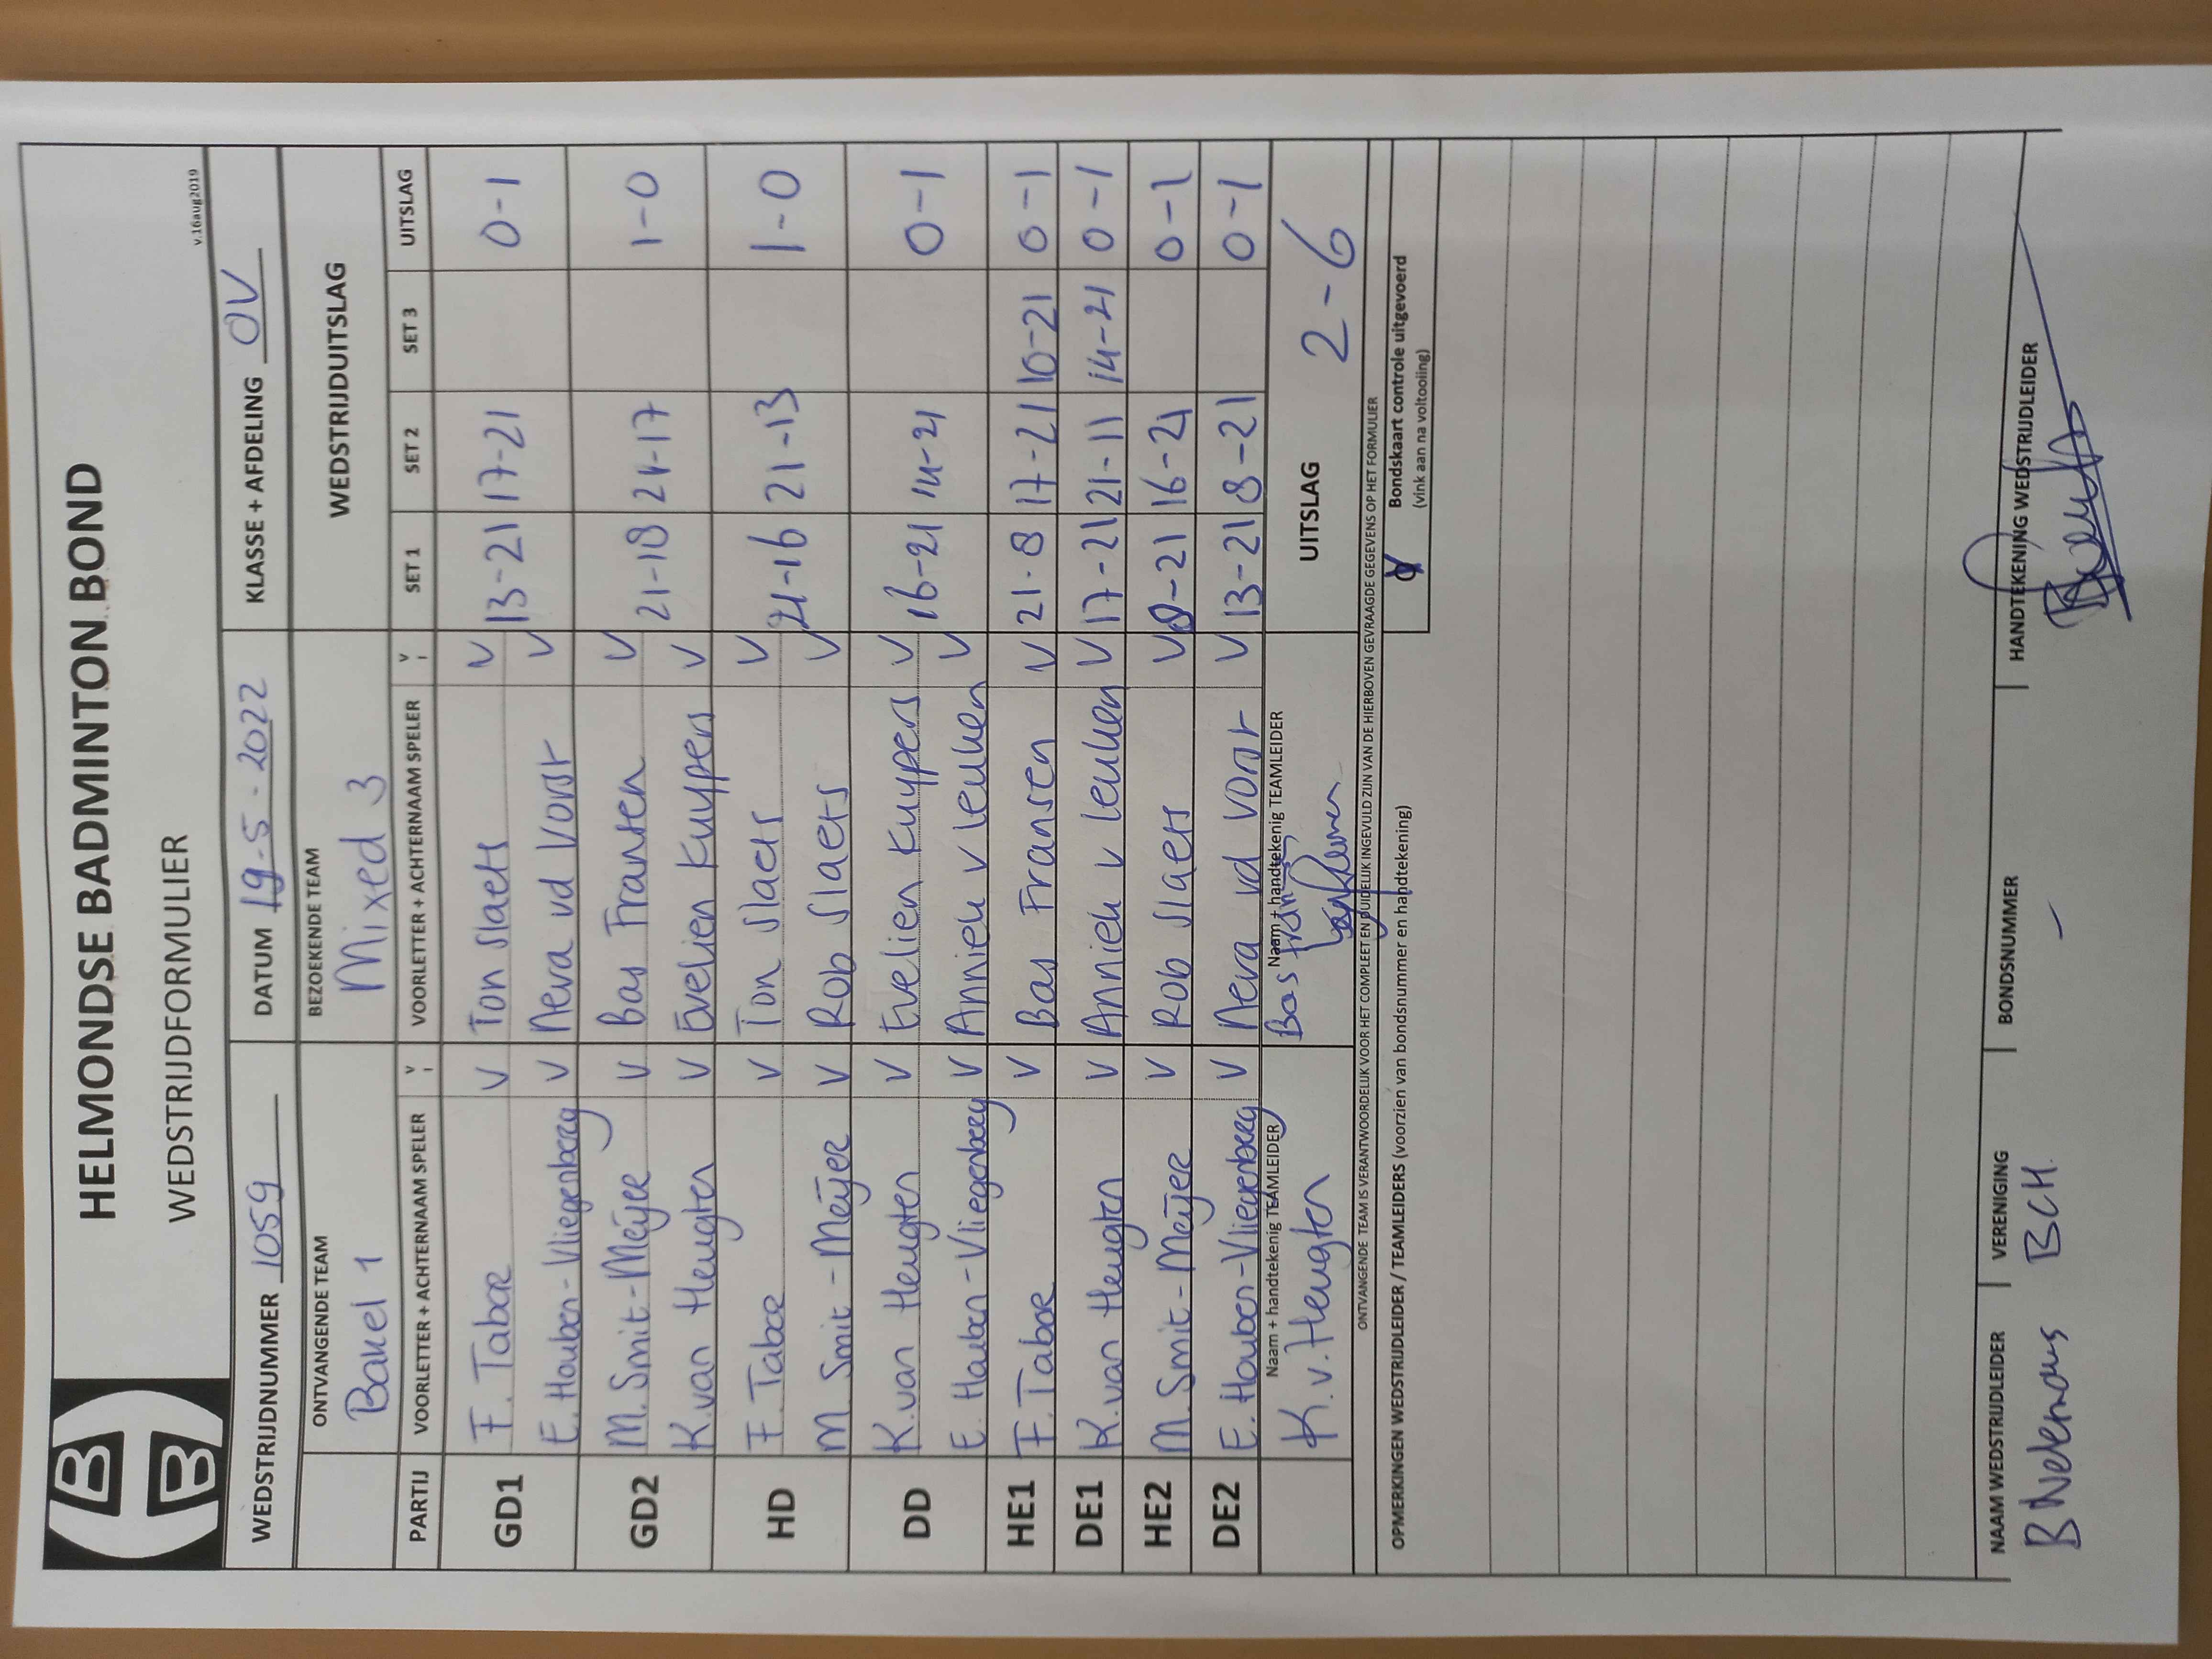 HELMONDSE BADMINTON BOND
WEDSTRIJDFORMULIER
v.16aug2019
WEDSTRIJDNUMMER 1059 DATUM 19-5-2022 KLASSE + AFDELING OV
ONTVANGENDE TEAM BEZOEKENDE TEAM WEDSTRIJDUITSLAG
Bakel 1 Mixed 3
PARTIJ VOORLETTER + ACHTERNAAM SPELER V VOORLETTER + ACHTERNAAM SPELER V SET 1 SET 2 SET 3 UITSLAG
GD1 F. Tabor V Ton Slaets V 13-21 17-21 0-1
E. Houben-Vliegenberg V Neva vd Vorst V
GD2 M. Smit-Meijer V Bas Fransen V 21-18 21-17 1-0
K. van Heugten V Evelien Kuypers V
HD F. Tabor V Ton Slaets V 21-16 21-13 1-0
M. Smit-Meijer V Rob Slaets V
DD K. van Heugten V Evelien Kuypers V 16-21 14-21 0-1
E. Houben-Vliegenberg V Anniek v Leuken V
HE1 F. Tabor V Bas Fransen V 21-8 17-21 10-21 0-1
DE1 K. van Heugten V Anniek v Leuken V 17-21 21-11 14-21 0-1
HE2 M. Smit-Meijer V Rob Slaets V 8-21 16-21 0-1
DE2 E. Houben-Vliegenberg V Neva vd Vorst V 13-21 8-21 0-1
Naam + handtekenig TEAMLEIDER Naam + handtekenig TEAMLEIDER UITSLAG 2-6
K. v. Heugten Bas Fransen
ONTVANGENDE TEAM IS VERANTWOORDELIJK VOOR HET COMPLEET EN DUIDELIJK INGEVULD ZIJN VAN DE HIERBOVEN GEVRAAGDE GEGEVENS OP HET FORMULIER
OPMERKINGEN WEDSTRIJDLEIDER / TEAMLEIDERS (voorzien van bondsnummer en handtekening)
Bondskaart controle uitgevoerd
(vink aan na voltooiing)
NAAM WEDSTRIJDLEIDER VERENIGING BONDSNUMMER HANDTEKENING WEDSTRIJDLEIDER
B BCH -